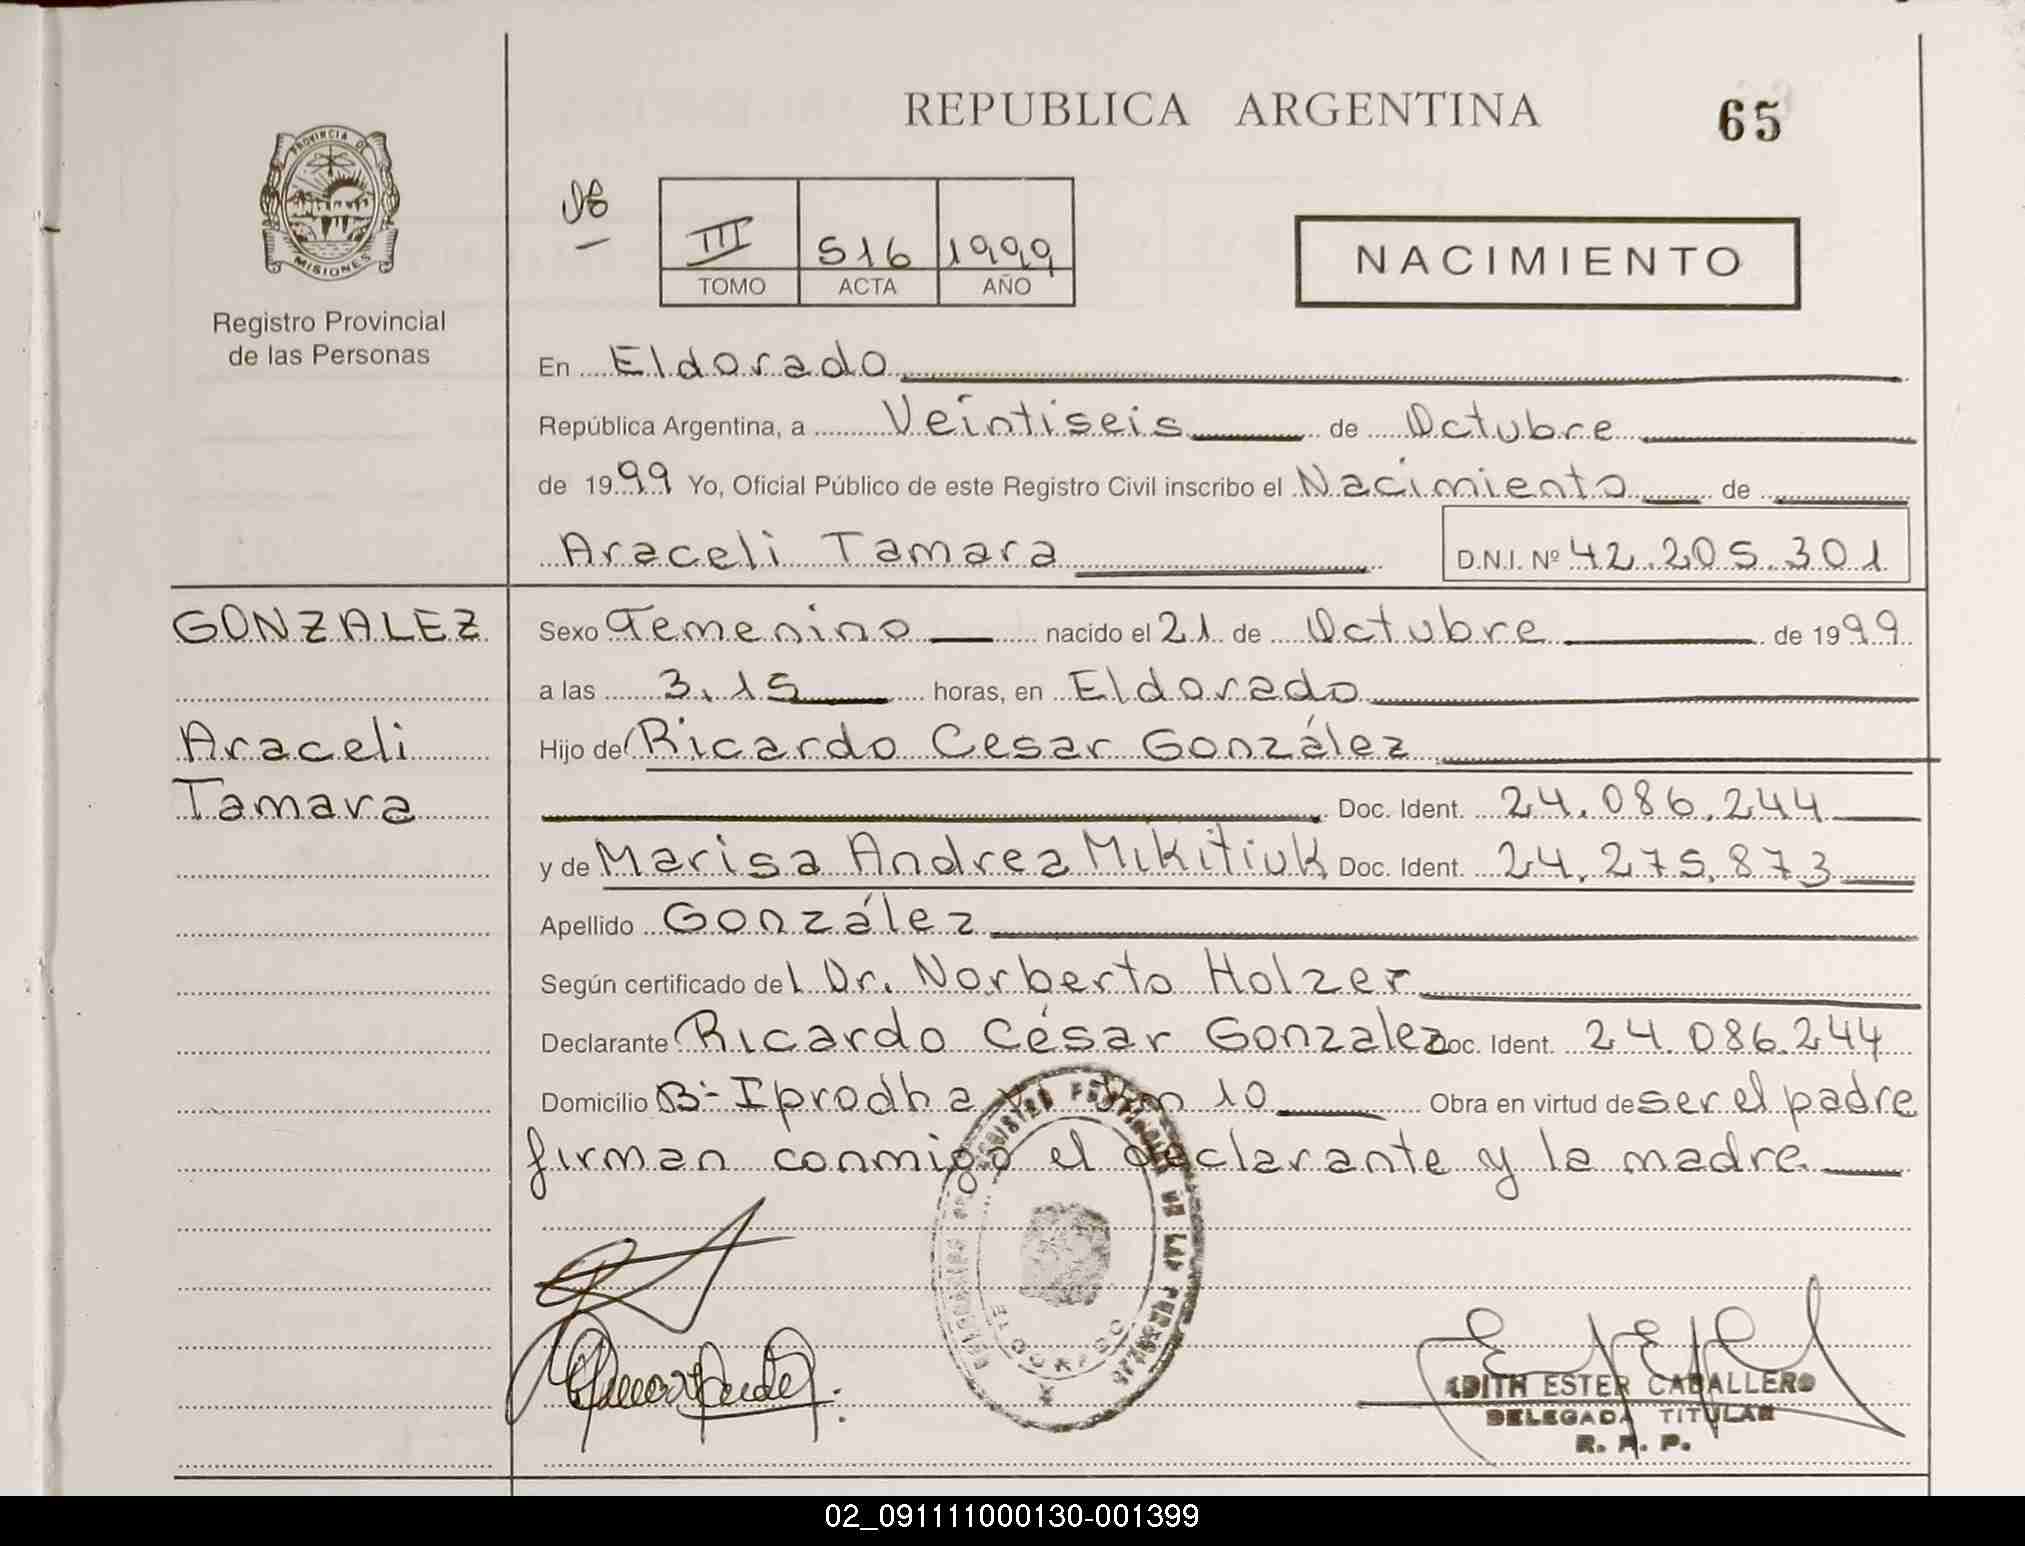 REPUBLICA ARGENTINA
65
PROVINCIA DE
MISIONES
Registro Provincial
de las Personas
III 516 1999
TOMO ACTA AÑO
NACIMIENTO
En Eldorado
República Argentina, a Veintiseis de Octubre
de 1999 Yo, Oficial Público de este Registro Civil inscribo el Nacimiento de
Araceli Tamara D.N.I. Nº 42.205.301
GONZALEZ
Araceli
Tamara
Sexo Femenino nacido el 21 de Octubre de 1999
a las 3.15 horas, en Eldorado
Hijo de Ricardo Cesar González
Doc. Ident. 24.086.244
y de Marisa Andrea Mikitiuk Doc. Ident. 24.275.873
Apellido González
Según certificado del Dr. Norberto Holzer
Declarante Ricardo César Gonzalez Doc. Ident. 24.086.244
Domicilio Bº Iprodha Km 10 Obra en virtud de ser el padre
firman conmigo el declarante y la madre
REGISTRO PROVINCIAL DE LAS PERSONAS
EDITH ESTER CABALLERO
DELEGADA TITULAR
R. P. P.
02_091111000130-001399